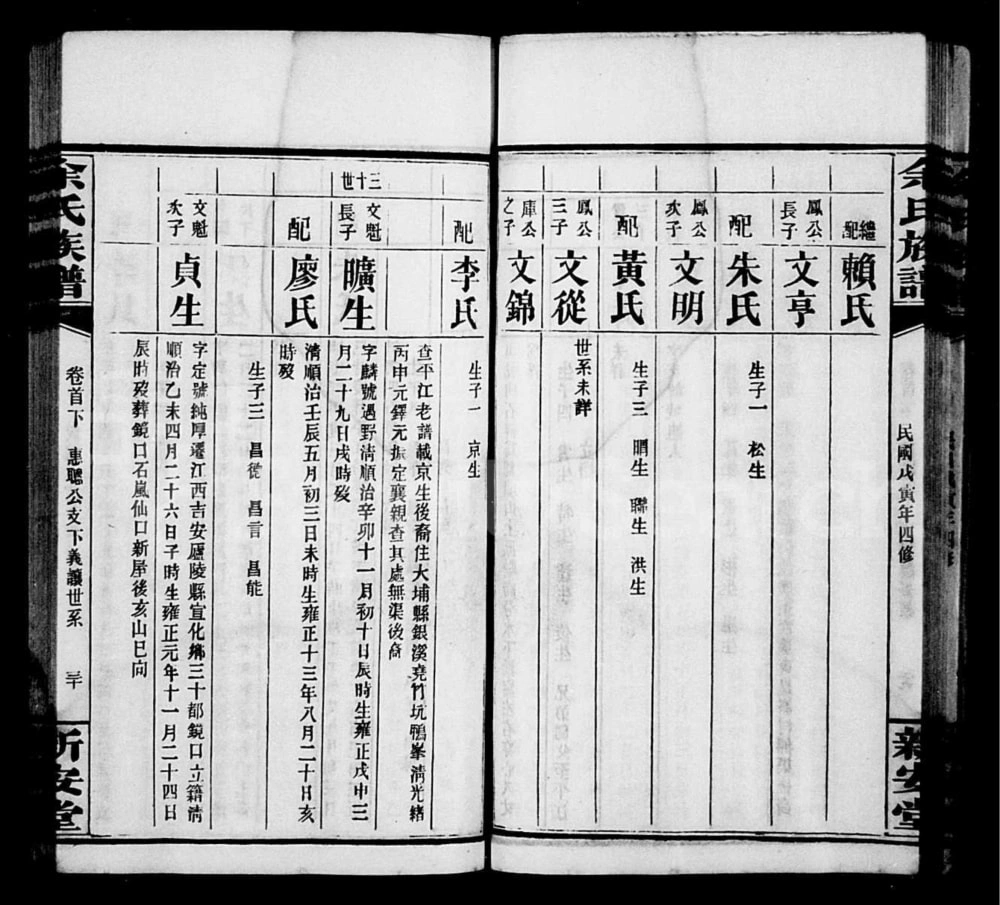 余氏族譜
民國戊寅年四修
新安堂
繼配
賴氏
鳳公長子
文亨
配
朱氏
生子一 松生
鳳公次子
文明
配
黃氏
生子三 明生 聯生 洪生
鳳公三子
文從
世系未詳
庫公之子
文錦
配
李氏
生子一 京生
查平江老譜載京生後裔住大埔縣銀溪堯竹坑鴨峯清光緒
丙申元鐸元振定襄親查其處無渠後裔
三十世
文魁長子
曠生
字麟號遇野清順治辛卯十一月初十日辰時生雍正戊申三
月二十九日戌時歿
配
廖氏
清順治壬辰五月初三日未時生雍正十三年八月二十日亥
時歿
生子三 昌從 昌言 昌能
文魁次子
貞生
字定號純厚遷江西吉安廬陵縣宣化鄉三十都鏡口立籍清
順治乙未四月二十六日子時生雍正元年十一月二十四日
辰時歿葬鏡口石嵐仙口新屋後亥山巳向
余氏族譜
卷首下 惠聰公支下義讓世系
新安堂